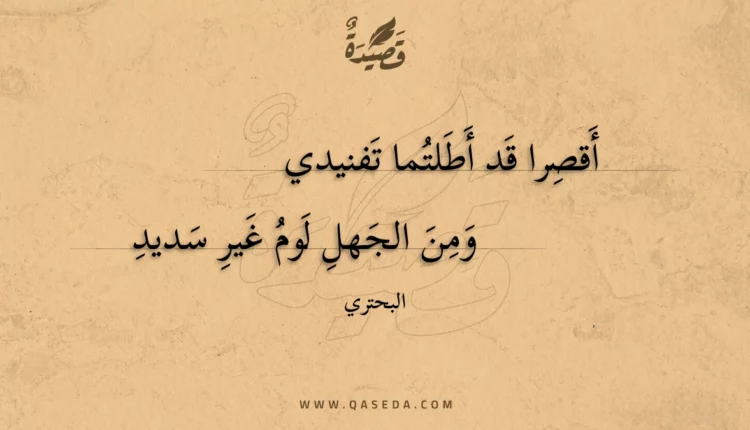 قَصِيْدَةٌ
أَقصِرا قَد أَطَلتُما تَفنيدي
وَمِنَ الجَهلِ لَومُ غَيرِ سَديدِ
البحتري
WWW.QASEDA.COM